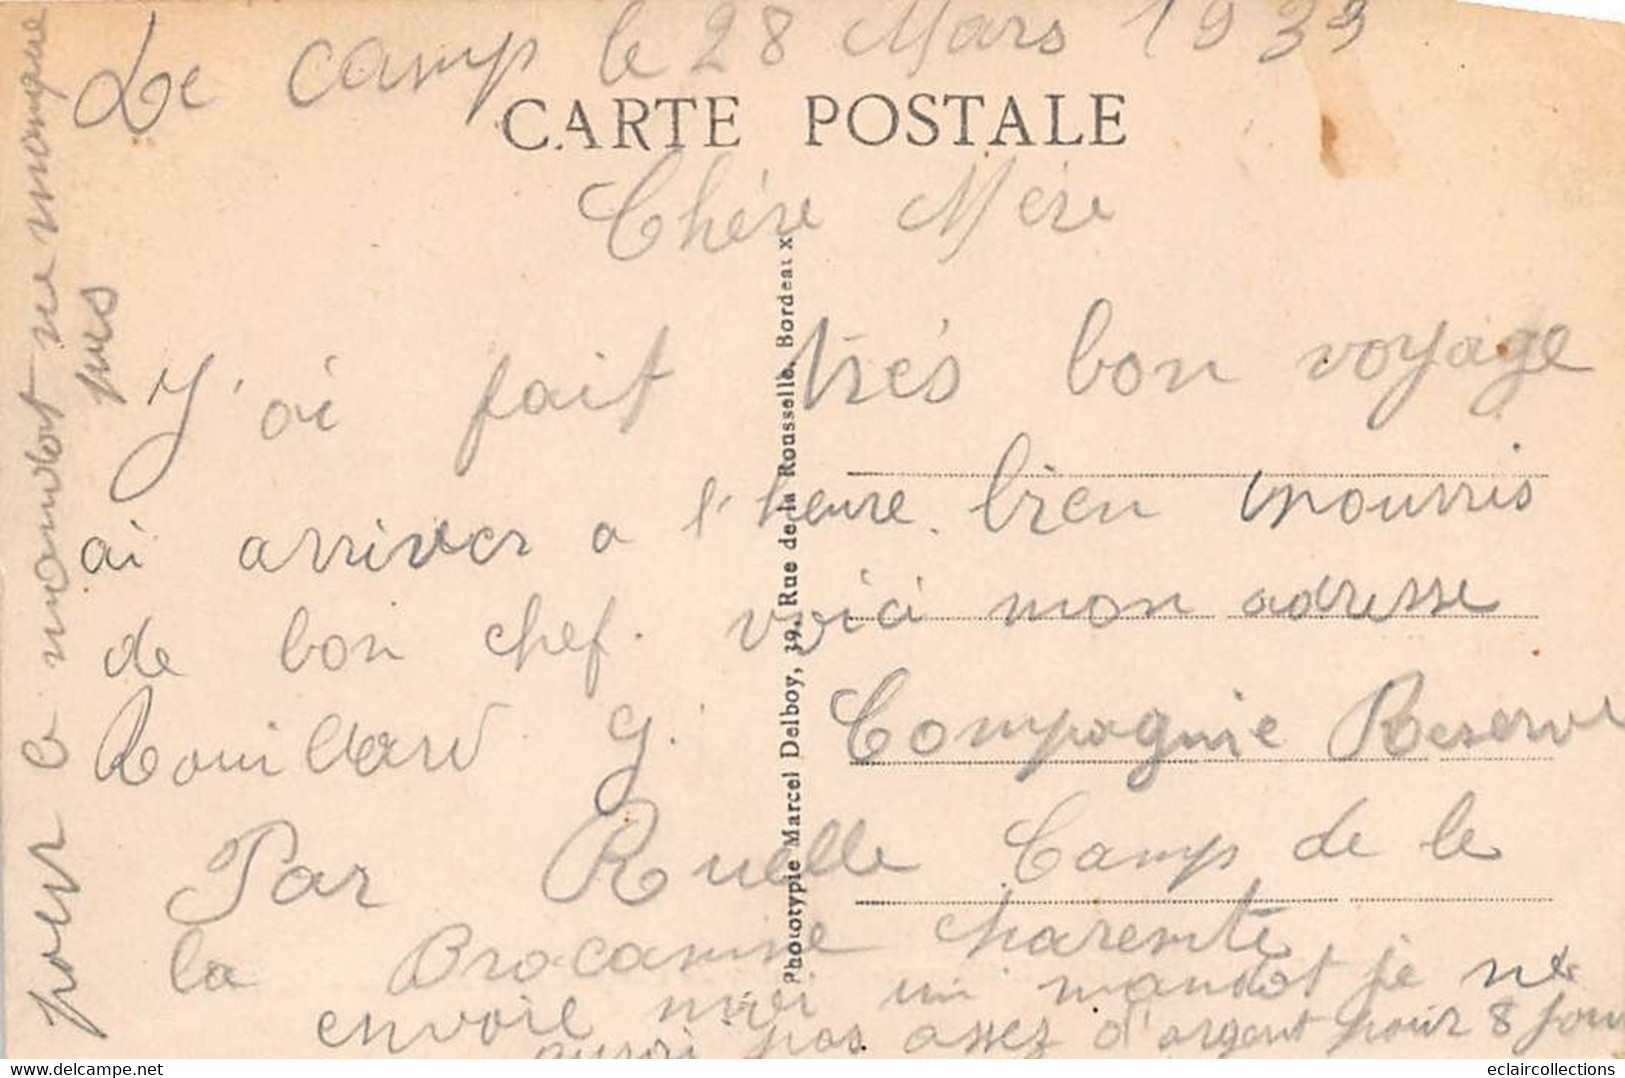 Le camp le 28 Mars 1933
CARTE POSTALE
Chére Mére
J'ai fait trés bon voyage
ai arriver a l'heure. bien nourris
de bon chef. voici mon adresse
Rouillard G. Compagnie Reserve
Par Ruelle Camp de le
la Brocanne charente
envoie moi un mandat je ne
aurai pas assez d'argent pour 8 jour
pour le mandat ne manque
pas
Phototypie Marcel Delboy, 39, Rue de la Rousselle, Bordeaux
eclaircollections